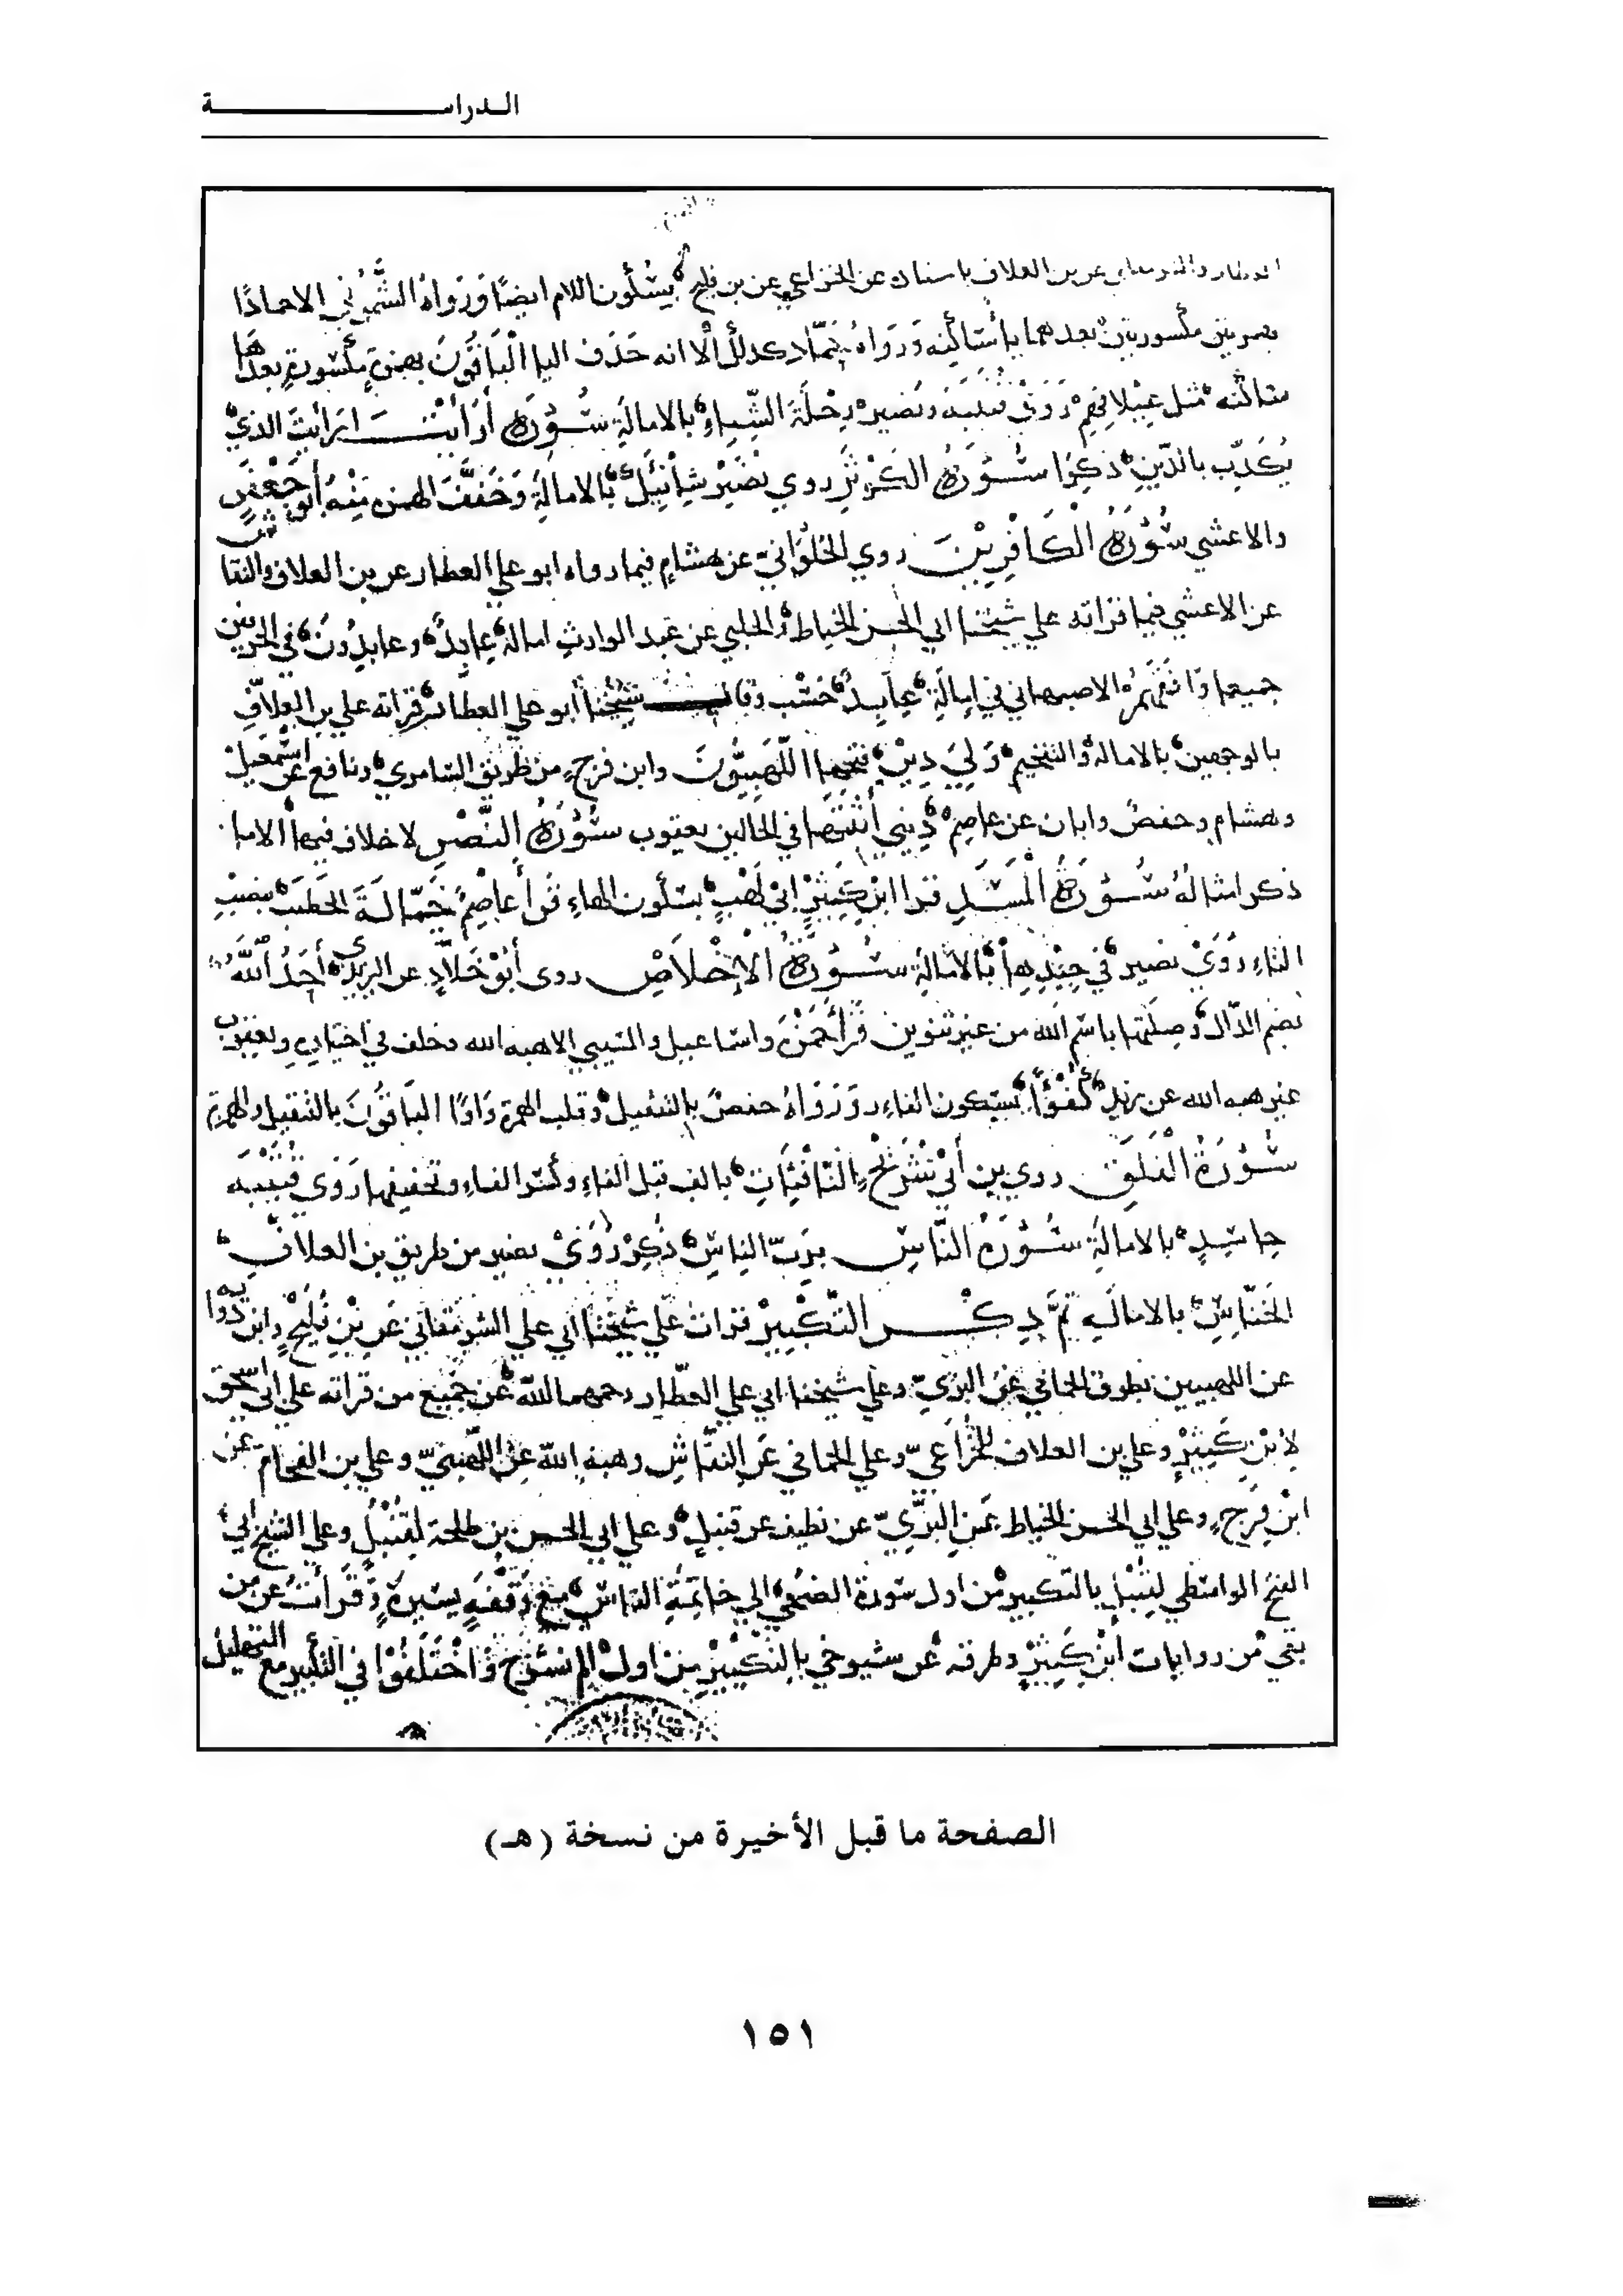 الـدراسـة
العطار والشرمقاني عن بن العلاف باسناده عن الخزاعي عن بن فليح بسكون اللام ايضا ورواه الشموني الاحمادا
بهمزتين مكسورتين بعدهما ياء ساكنه ورواه حماد كذلك الا انه حذف اليا الباقون بهمزة مكسورة بعدها
ساكنه مثل عيلافهم روى قتيبه ونصير رحلة الشتاء بالامالة سورة أرأيت ارايت الذي
يكذب بالدين ذكرا سورة الكوثر روي نصير شانئك بالامالة وخفف الهمزه منه أبو جعفر
والاعشي سورة الكافرين روي الحلواني عن هشام فيما رواه ابو علي العطار عن بن العلاف والنقا
عن الاعشي فيما قراته علي شيخنا ابي الحسن الخياط والحلبي عن عبد الوارث امالة عابد وعابدون في الحرفين
جميعا وافقهم الاصبهاني في إمالة عابد حسب وقال شيخنا أبو علي العطار قراته علي بن العلاف
بالوجهين بالامالة والتفخيم ولي دين فتحها اللهبيون وابن فرح من طريق السامري ونافع عن اسمعيل
وهشام وحفص وابان عن عاصم ديني أثبتها في الحالين يعقوب سورة النصر لا خلاف فيها الا ما
ذكر امثاله سورة المسد قرا ابن كثير ابي لهب بسكون الهاء قرأ عاصم حمالة الحطب بنصب
التاء روى نصير في جيدها بالامالة سورة الإخلاص روى أبو خلاد عن اليزيدي أحد الله
بضم الدال وصلتها باسم الله من غير تنوين قرأ حمزة واسماعيل والمسيبي الا هبه الله وخلف في اختياره ويعقوب
غير هبه الله عن زيد كفؤا بسكون الفاء ورواه حفص بالتثقيل وقلب الهمزة واوا الباقون بالتثقيل والهمزة
سورة الفلق روي بن أبي شريح النافثات بالف قبل الفاء وكسر الفاء وتخفيفها روى قتيبه
حاسد بالامالة سورة الناس برب الناس ذكر روى نصير من طريق بن العلاف
الخناس بالاماله ثم ذكر التكبير قرات علي شيخنا ابي علي الشرمقاني عن بن فليح وابن دوابه
عن اللهبيين بطرق الحمامي عن البزي وعلي شيخنا ابي علي العطار رحمهما الله عن جميع من قراته علي ابي اسحق
لابن كثير وعلي بن العلاف للخزاعي وعلي الحمامي عن النقاش وهبة الله عن اللهبي وعلي بن الفحام عن
ابن فرح وعلي ابي الحسن الخياط عن البزي عن نظيف عن قنبل وعلي ابي الحسن بن طلحة لقنبل وعلي الشيخ ابي
الفتح الواسطي لقنبل بالتكبير من اول سورة الضحي الي خاتمة الناس مع وقفة يسيرة وقرأت عن من
بقي من روايات ابن كثير وطرقه عن شيوخي بالتكبير من اول الم نشرح واختلفوا في التكبير مع التهليل
الصفحة ما قبل الأخيرة من نسخة (هـ)
١٥١